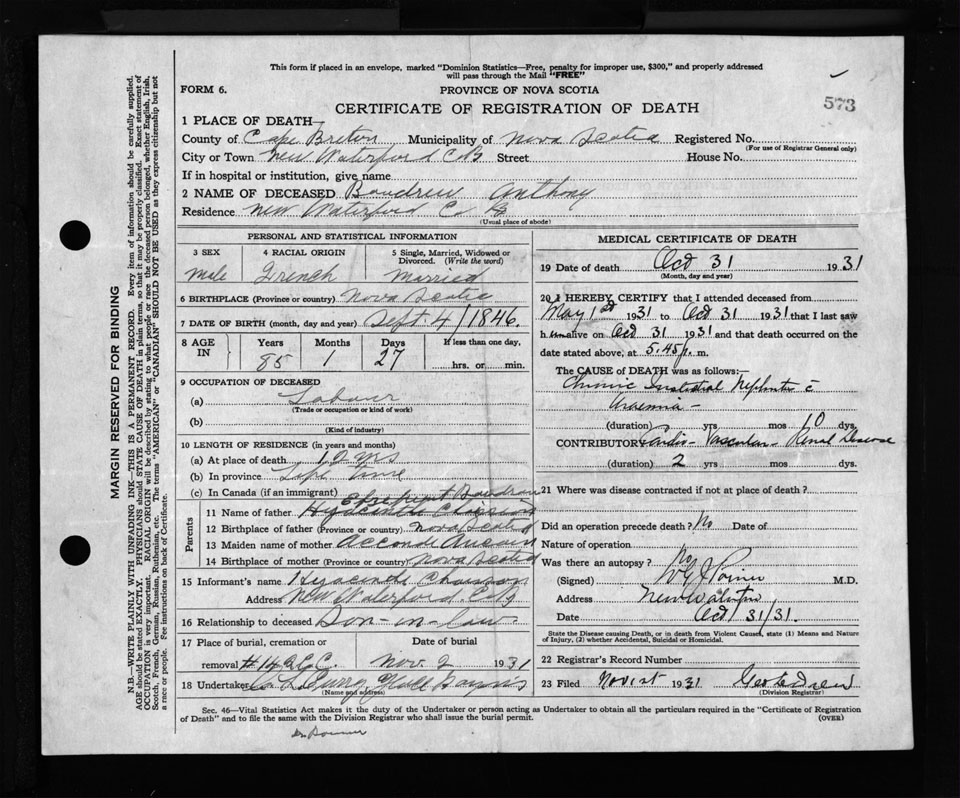 This form if placed in an envelope, marked "Dominion Statistics—Free, penalty for improper use, $300," and properly addressed
will pass through the Mail "FREE"
FORM 6.
PROVINCE OF NOVA SCOTIA
573
CERTIFICATE OF REGISTRATION OF DEATH
1 PLACE OF DEATH—
County of Cape Breton Municipality of Nova Scotia Registered No.
(For use of Registrar General only)
City or Town New Waterford C.B Street House No.
If in hospital or institution, give name
2 NAME OF DECEASED Boudrew Anthony
Residence New Waterford Co B
(Usual place of abode)
PERSONAL AND STATISTICAL INFORMATION
3 SEX 4 RACIAL ORIGIN 5 Single, Married, Widowed or
Divorced. (Write the word)
Male French Married
6 BIRTHPLACE (Province or country) Nova Scotia
7 DATE OF BIRTH (month, day and year) Sept 4/1846
8 AGE IN Years Months Days If less than one day,
85 1 27 hrs. or min.
9 OCCUPATION OF DECEASED
(a) Labour
(Trade or occupation or kind of work)
(b)
(Kind of industry)
10 LENGTH OF RESIDENCE (in years and months)
(a) At place of death 12 yrs
(b) In province Life time
(c) In Canada (if an immigrant)
Parents
Boudrow
11 Name of father Hyacinth
12 Birthplace of father (Province or country) Nova Scotia
13 Maiden name of mother
14 Birthplace of mother (Province or country) Nova Scotia
15 Informant's name Hyacinth Chaisson
Address New Waterford
16 Relationship to deceased Son-in-law
17 Place of burial, cremation or Date of burial
removal Nov. 2 1931
18 Undertaker
(Name and address)
MEDICAL CERTIFICATE OF DEATH
19 Date of death Oct 31 1931
(Month, day and year)
20 I HEREBY CERTIFY that I attended deceased from
May 1st 1931 to Oct 31 1931 that I last saw
h im alive on Oct 31 1931 and that death occurred on the
date stated above, at 5.45 p. m.
The CAUSE of DEATH was as follows:—
Chronic Interstitial Nephritis c̄
Uraemia —
(duration) yrs mos 10 dys.
CONTRIBUTORY Cardio-Vascular-Renal Disease
(duration) 2 yrs mos dys.
21 Where was disease contracted if not at place of death?
Did an operation precede death? No Date of
Nature of operation
Was there an autopsy? No
(Signed) M.D.
Address New Waterford
Date Oct 31/31.
State the Disease causing Death, or in death from Violent Causes, state (1) Means and Nature
of Injury, (2) whether Accidental, Suicidal or Homicidal.
22 Registrar's Record Number
23 Filed Nov 1st 1931
(Division Registrar)
Sec. 46—Vital Statistics Act makes it the duty of the Undertaker or person acting as Undertaker to obtain all the particulars required in the "Certificate of Registration
of Death" and to file the same with the Division Registrar who shall issue the burial permit.
(OVER)
MARGIN RESERVED FOR BINDING
N.B.—WRITE PLAINLY WITH UNFADING INK—THIS IS A PERMANENT RECORD. Every item of information should be carefully supplied.
AGE should be stated EXACTLY. PHYSICIANS should STATE CAUSE OF DEATH in plain terms, so that it may be properly classified. Exact statement of
OCCUPATION is very important. RACIAL ORIGIN will be described by stating to what people or race the deceased person belonged, whether English, Irish,
Scotch, French, German, Russian, Ruthenian, etc. The terms "AMERICAN" or "CANADIAN" SHOULD NOT BE USED as they express citizenship but not
a race or people. Fee instructions on back of Certificate.